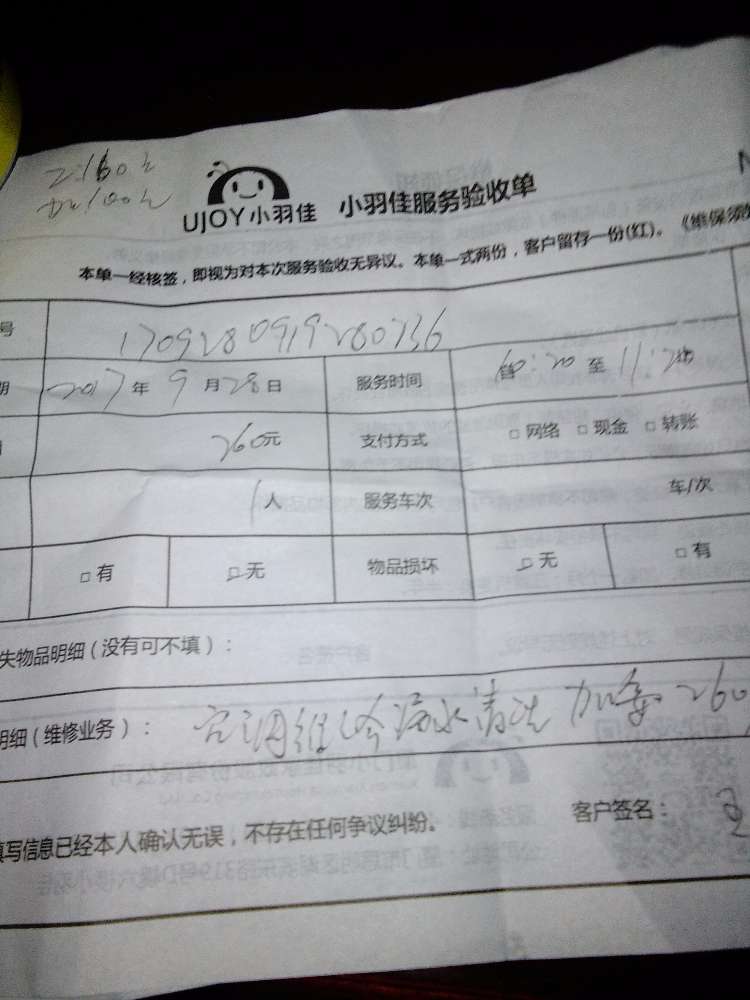 160元
100元
UJOY小羽佳 小羽佳服务验收单
本单一经核签,即视为对本次服务验收无异议。本单一式两份,客户留存一份(红)。《维保须
号 1709280919280736
期 2017年9月28日 服务时间 10:20 至 11:20
260元 支付方式 □网络 □现金 □转账
1人 服务车次 车/次
□有 □无 物品损坏 □无 □有
失物品明细(没有可不填):
明细(维修业务): 空调 漏水清洗 260
填写信息已经本人确认无误,不存在任何争议纠纷。 客户签名: 王